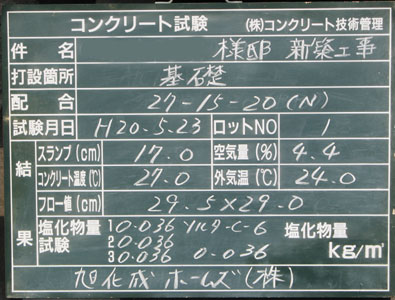 コンクリート試験 (株)コンクリート技術管理
件名 様邸 新築工事
打設箇所 基礎
配合 27-15-20(N)
試験月日 H20.5.23 ロットNO 1
結果
スランプ(cm) 17.0 空気量(%) 4.4
コンクリート温度(℃) 27.0 外気温(℃) 24.0
フロー値(cm) 29.5×29.0
塩化物量試験 1 0.036 ソルター C-6 塩化物量
2 0.036
3 0.036 0.036 kg/m³
旭化成ホームズ(株)